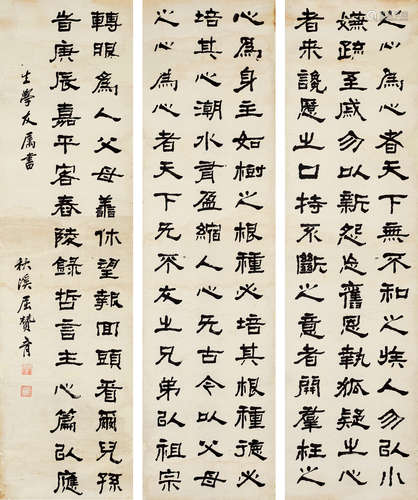 之心為心者天下無不和之族人勿以小
嫌疏至戚勿以新怨忘舊恩執狐疑之心
者来讒慝之口持不斷之意者開羣枉之
心為身主如樹之根種必培其根種德必
培其心潮水有盈縮人心无古今以父母
之心為心者天下无不友之兄弟以祖宗
轉眼為人父母休望報回頭看爾兒孫
庚辰嘉平客舂陵錄哲言主心篇以應
士學友属書
秋溪贊育